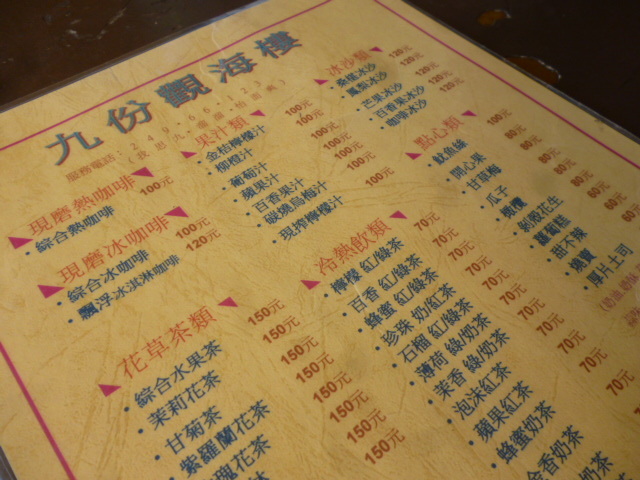 九份觀海樓
服務電話:
現磨熱咖啡
・綜合熱咖啡 100元
現磨冰咖啡
・綜合冰咖啡 100元
・飄浮冰淇淋咖啡 120元
花草茶類
・綜合水果茶 150元
・茉莉花茶 150元
・甘菊茶 150元
・紫羅蘭花茶 150元
150元
150元
果汁類
・金桔檸檬汁 100元
・柳橙汁 100元
・葡萄汁 100元
・蘋果汁 100元
・百香果汁 100元
・碳燒烏梅汁 100元
・現搾檸檬汁 100元
冷熱飲類
・檸檬 紅/綠茶 70元
・百香 紅/綠茶 70元
・蜂蜜 紅/綠茶 70元
・珍珠 奶/紅茶 70元
・石榴 紅/綠茶 70元
・薄荷 綠/奶茶 70元
・茉香 綠/奶茶 70元
・泡沫紅茶 70元
・蘋果紅茶 70元
・蜂蜜奶茶
冰沙類
・桑椹冰沙 120元
・鳳梨冰沙 120元
・芒果冰沙 120元
・百香果冰沙 120元
・咖啡冰沙 120元
點心類
・魷魚絲 100元
・開心果 80元
・甘草梅 80元
・瓜子 80元
・橄欖 80元
・剝殼花生
・蘿蔔糕
・甜不辣
・雞翼
・厚片土司